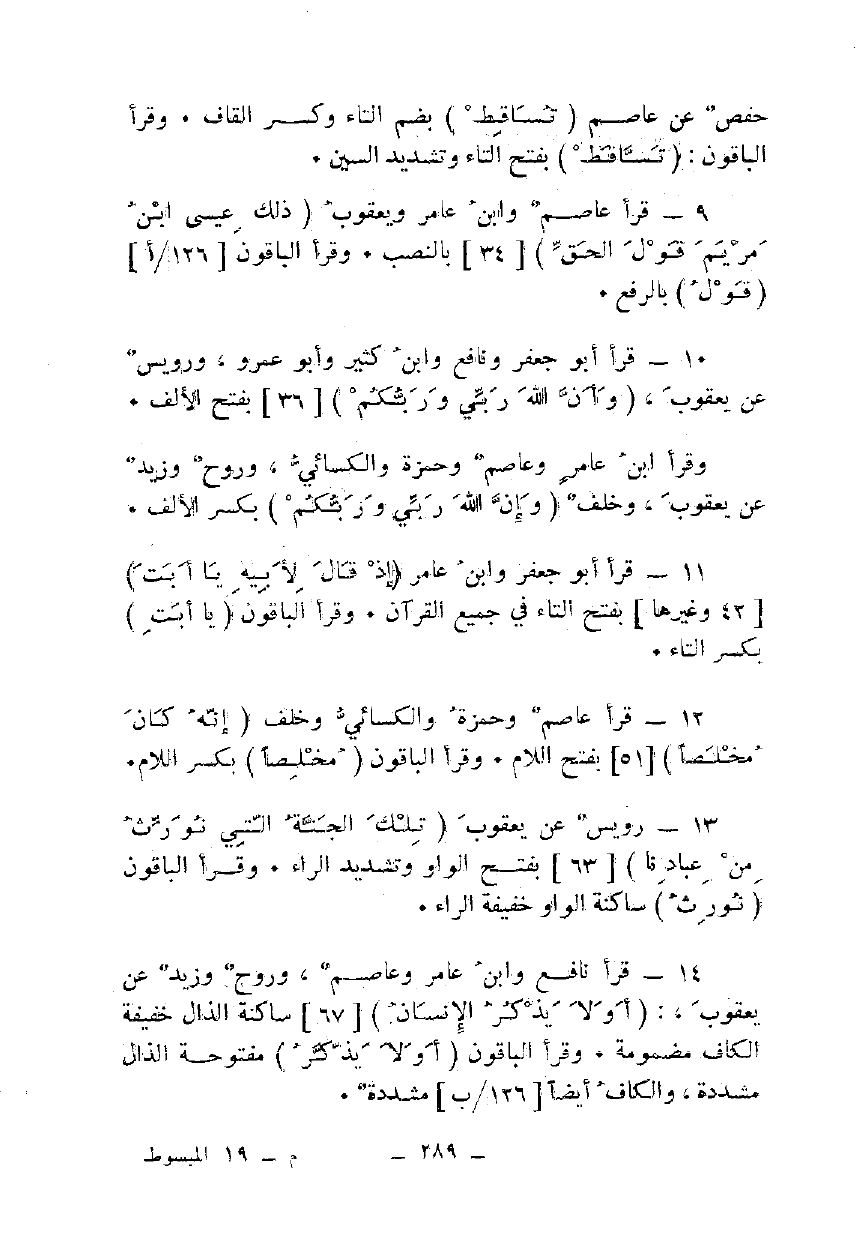 حفصٌ عن عاصـــم ( تُسَاقِطْ ) بضم التاء وكـــسر القاف ٠ وقرأ
الباقون : ( تَسَّاقَطْ ) بفتح التاء وتشديد السين ٠
٩ ــ قرأ عاصـــمٌ وابنُ عامر ويعقوبُ ( ذلك عِيسى ابْنُ
مَرْيَمَ قَوْلَ الحَقِّ ) [ ٣٤ ] بالنصب ٠ وقرأ الباقون [ ١٢٦/أ ]
( قَوْلُ ) بالرفع ٠
١٠ ــ قرأ أبو جعفر ونافع وابنُ كثير وأبو عمرو ، ورويسٌ
عن يعقوبَ ، ( وَأَنَّ اللهَ رَبِّي وَرَبُّكُمْ ) [ ٣٦ ] بفتح الألف ٠
وقرأ ابنُ عامرٍ وعاصمٌ وحمزة والكسائيُّ ، وروحٌ وزيدٌ
عن يعقوبَ ، وخلفٌ ( وَإِنَّ اللهَ رَبِّي وَرَبُّكُمْ ) بكسر الألف ٠
١١ ــ قرأ أبو جعفر وابنُ عامر (إِذْ قَالَ لِأَبِيهِ يَا أَبَتَ)
[ ٤٢ وغيرها ] بفتح التاء في جميع القرآن ٠ وقرأ الباقون ( يا أبَتِ )
بكسر التاء ٠
١٢ ــ قرأ عاصمٌ وحمزةُ والكسائيُّ وخلف ( إنّهُ كَانَ
مُخْلَصاً ) [٥١] بفتح اللام ٠ وقرأ الباقون ( مُخْلِصاً ) بكسر اللام٠
١٣ ــ رويسٌ عن يعقوبَ ( تِلْكَ الجَنَّةُ الَّتِي نُوَرِّثُ
مِنْ عِبادِنا ) [ ٦٣ ] بفتـــح الواو وتشديد الراء ٠ وقـــرأ الباقون
( نُورِثُ ) ساكنة الواو خفيفة الراء ٠
١٤ ــ قرأ نافـــع وابنُ عامر وعاصـــمٌ ، وروحٌ وزيدٌ عن
يعقوبَ ، : ( أَوَلاَ يَذْكُرُ الإنسَانُ ) [ ٦٧ ] ساكنة الذال خفيفة
الكاف مضمومة ٠ وقرأ الباقون ( أَوَلاَ يَذَّكَّرُ ) مفتوحـــة الذال
مشددة ، والكافُ أيضاً [ ١٢٦/ب ] مشددةٌ ٠
ــ ٢٨٩ ــ م ــ ١٩ المبسوط